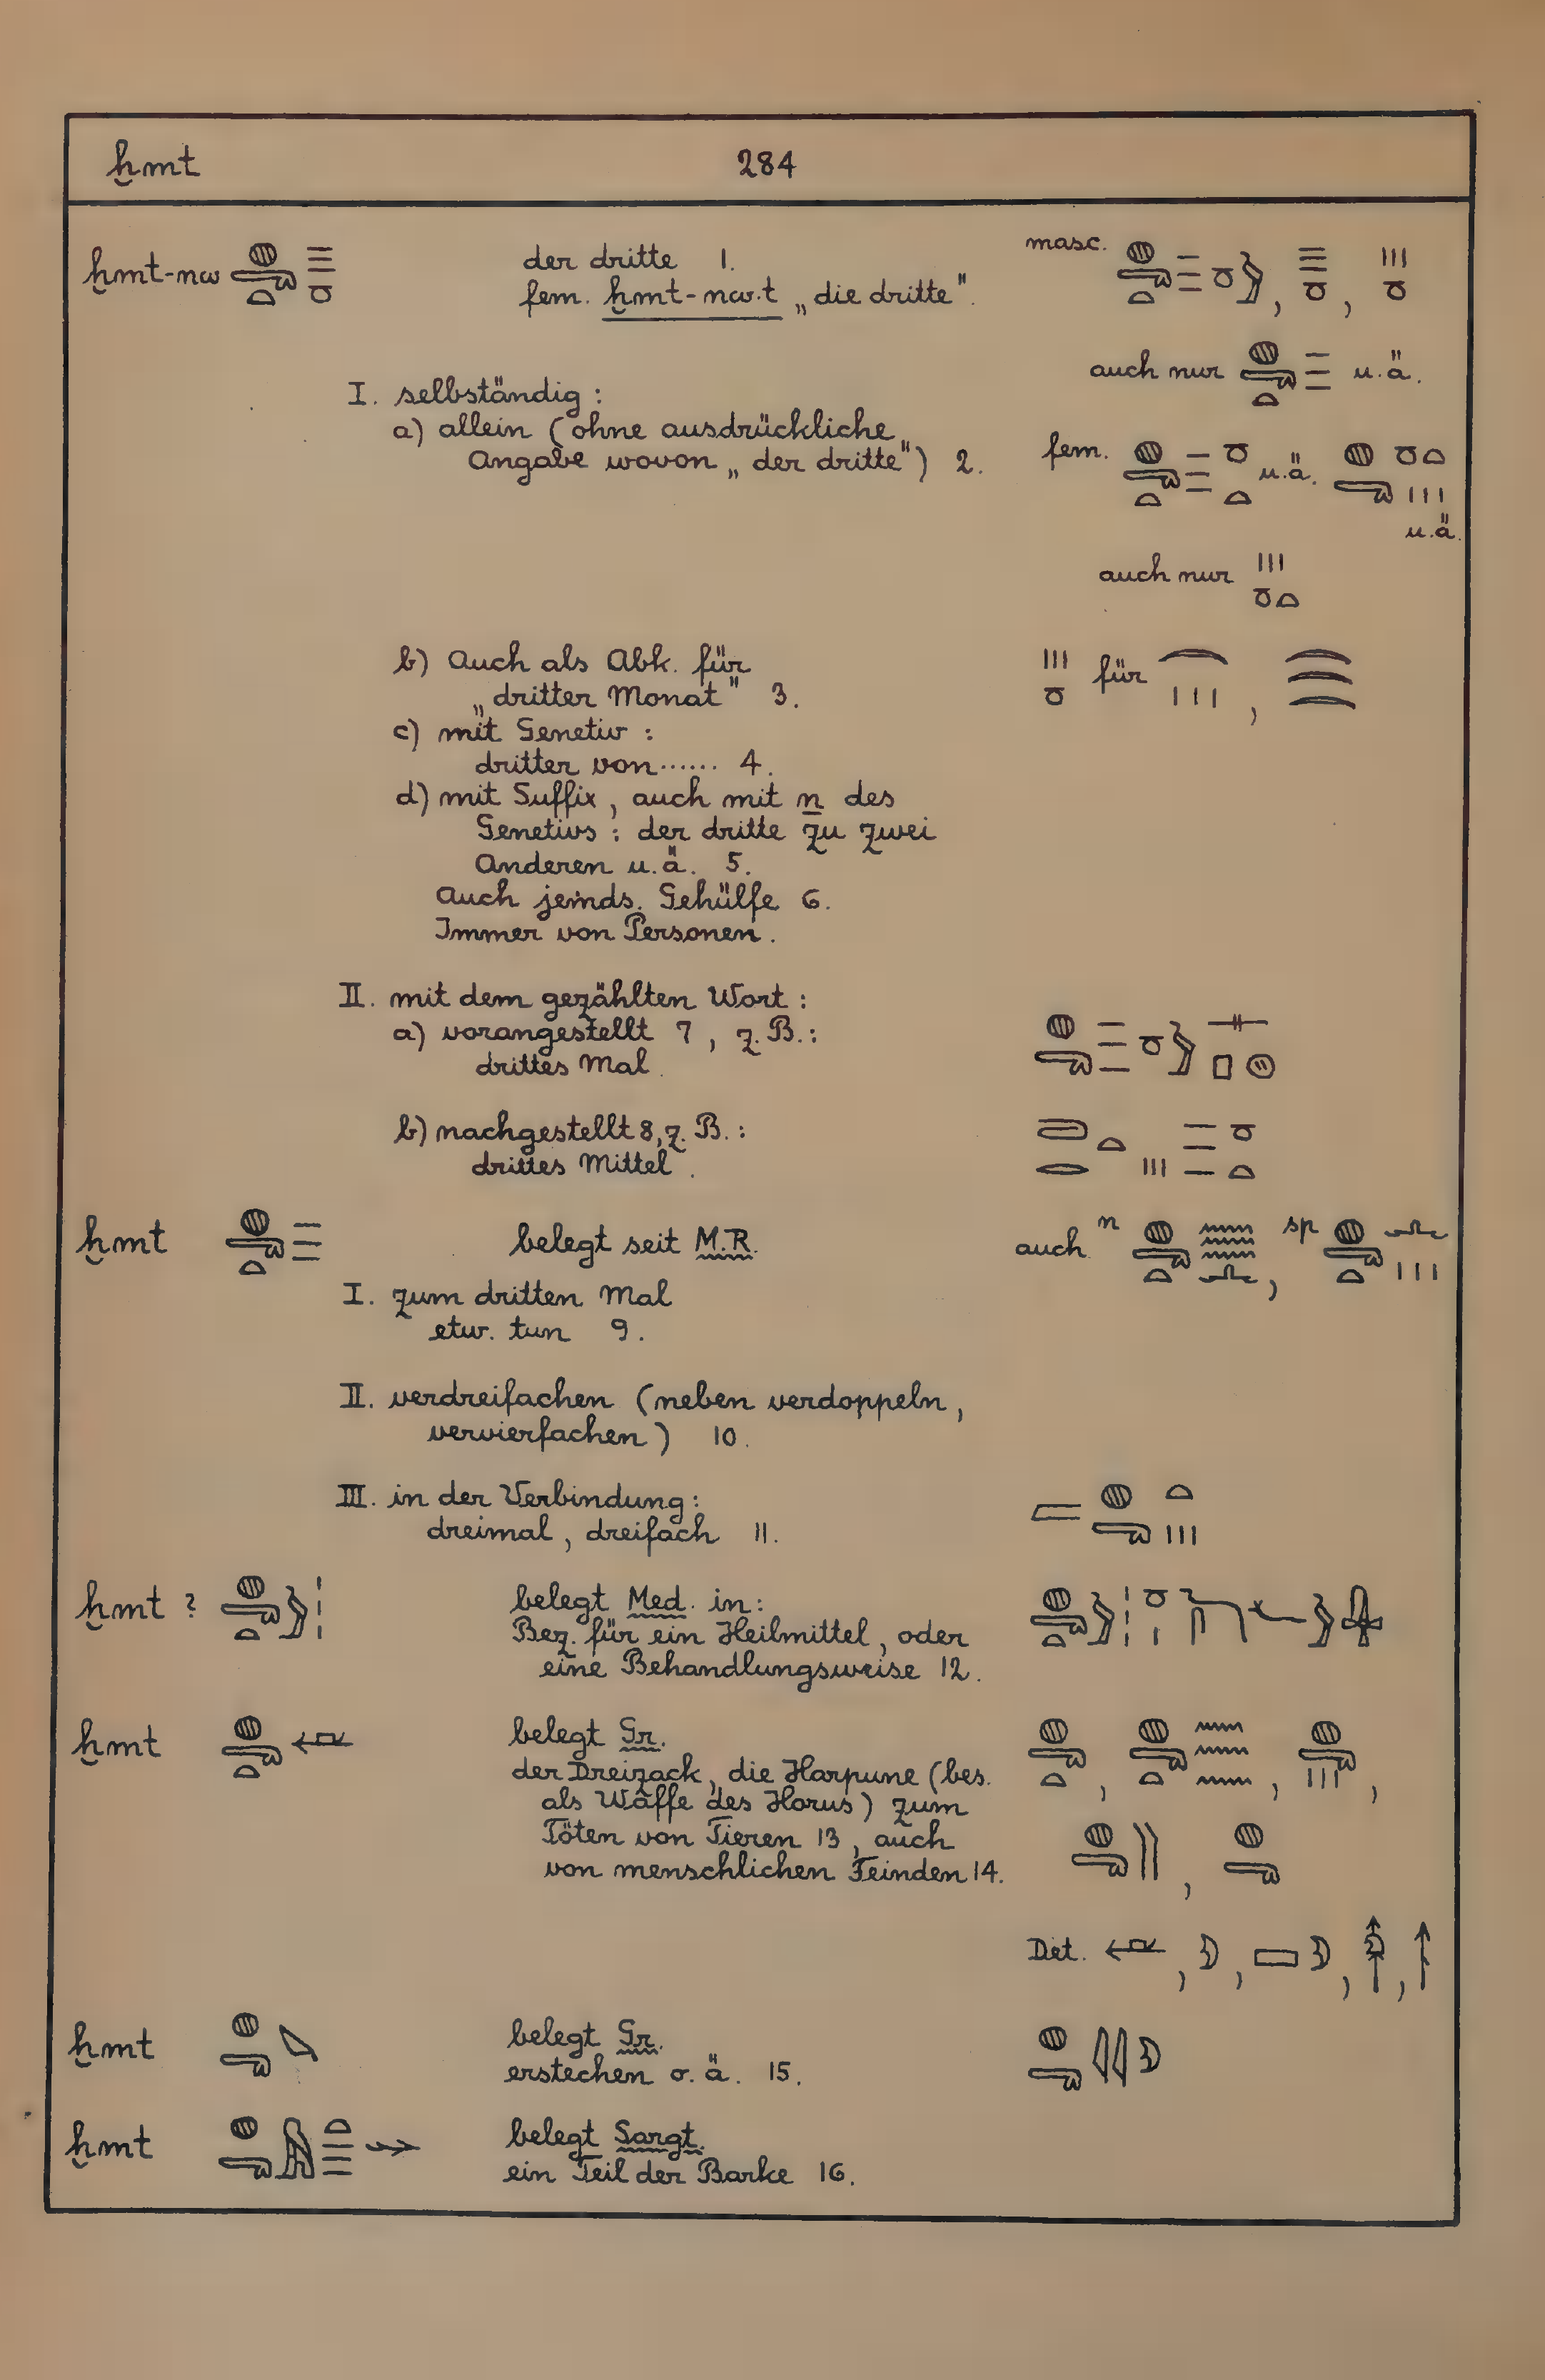 ḫmt 284
ḫmt-nw der dritte 1. masc.
fem. ḫmt-nw.t „die dritte".
auch nur u.ä.
I. selbständig:
a) allein (ohne ausdrückliche
Angabe wovon „der dritte") 2. fem. u.ä.
u.ä.
auch nur
b) Auch als Abk. für
„dritter Monat" 3. für
c) mit Genetiv:
dritter von...... 4.
d) mit Suffix, auch mit n des
Genetivs: der dritte zu zwei
Anderen u.ä. 5.
Auch jemds. Gehülfe 6.
Immer von Personen.
II. mit dem gezählten Wort:
a) vorangestellt 7, z.B.:
drittes Mal.
b) nachgestellt 8, z.B.:
drittes Mittel.
ḫmt belegt seit M.R. auch n , sp
I. zum dritten Mal
etw. tun 9.
II. verdreifachen (neben verdoppeln,
vervierfachen) 10.
III. in der Verbindung:
dreimal, dreifach 11.
ḫmt ? belegt Med. in:
Bez. für ein Heilmittel, oder
eine Behandlungsweise 12.
ḫmt belegt Gr.
der Dreizack, die Harpune (bes.
als Waffe des Horus) zum
Töten von Tieren 13, auch
von menschlichen Feinden 14.
Det.
ḫmt belegt Gr.
erstechen o.ä. 15.
ḫmt belegt Sargt.
ein Teil der Barke 16.